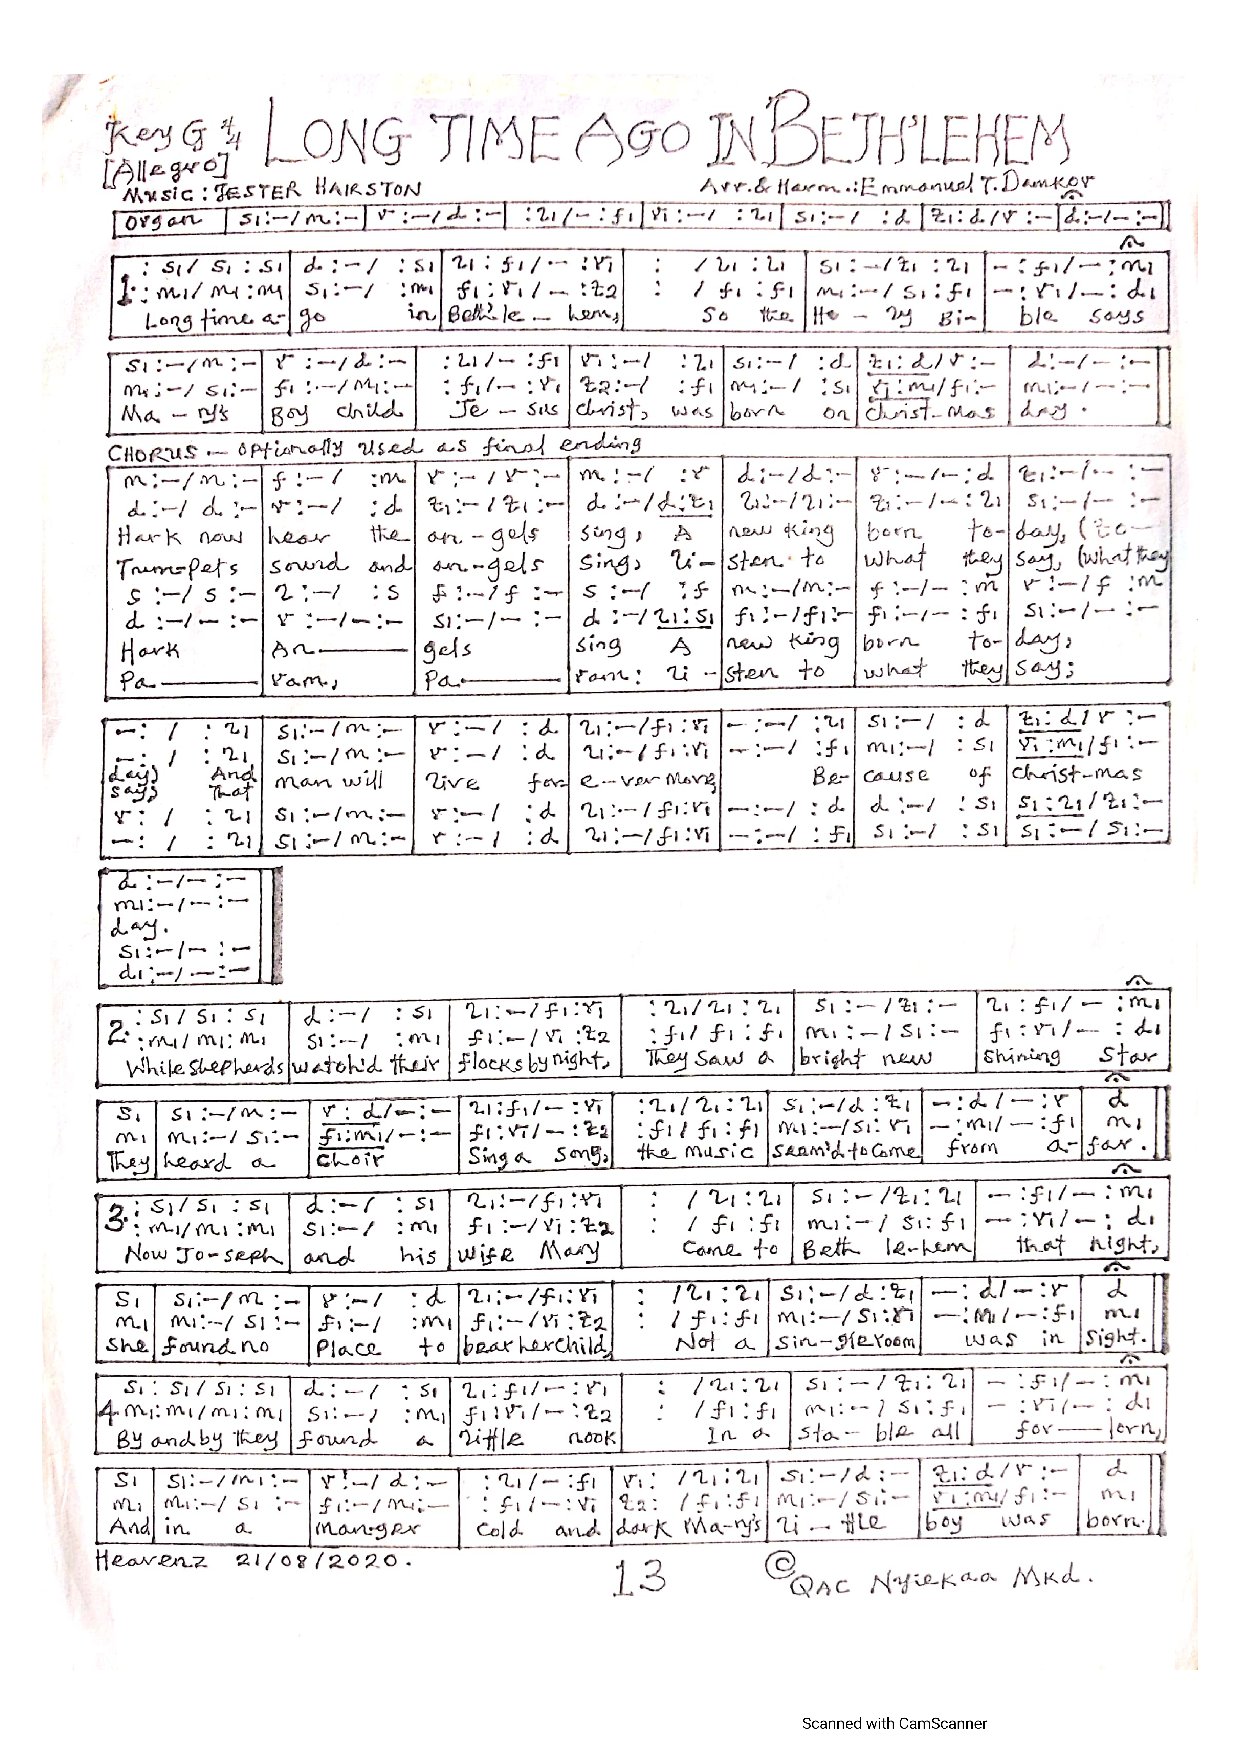 Key G 4/4 LONG TIME AGO IN BETH'LEHEM
[Allegro]
Music: JESTER HAIRSTON Arr. & Harm.: Emmanuel T. Damkor
Organ | s₁:–/m:– | r:–/d:– | :l₁/–:f₁ | r₁:–/ :l₁ | s₁:–/ :d | t₁:d/r:– | d:–/–:– ||
1. :s₁/s₁:s₁ | d:–/ :s₁ | l₁:f₁/–:r₁ | : /l₁:l₁ | s₁:–/t₁:l₁ | –:f₁/–:m₁
:m₁/m₁:m₁ | s₁:–/ :m₁ | f₁:r₁/–:t₂ | : /f₁:f₁ | m₁:–/s₁:f₁ | –:r₁/–:d₁
Long time a- | go in | Beth'le – hem, | So the | Ho – ly Bi- | ble says
s₁:–/m:– | r:–/d:– | :l₁/–:f₁ | r₁:–/ :l₁ | s₁:–/ :d | t₁:d/r:– | d:–/–:– ||
m₁:–/s₁:– | f₁:–/m₁:– | :f₁/–:r₁ | t₂:–/ :f₁ | m₁:–/ :s₁ | r₁:m₁/f₁:– | m₁:–/–:– ||
Ma – ry's | Boy child | Je – sus | christ, was | born on | christ-mas | day.
CHORUS – optionally used as final ending
m:–/m:– | f:–/ :m | r:–/r:– | m:–/ :r | d:–/d:– | r:–/–:d | t₁:–/–:–
d:–/d:– | r:–/ :d | t₁:–/t₁:– | d:–/d:t₁ | l₁:–/l₁:– | t₁:–/–:l₁ | s₁:–/–:–
Hark now | hear the | an-gels | sing, A | new king | born to- | day, (to-
Trum-pets | sound and | an-gels | sing, li- | sten to | what they | say, (what they
s:–/s:– | l:–/ :s | f:–/f:– | s:–/ :f | m:–/m:– | f:–/–:m | r:–/f:m
d:–/–:– | r:–/–:– | s₁:–/–:– | d:–/l₁:s₁ | f₁:–/f₁:– | f₁:–/–:f₁ | s₁:–/–:–
Hark | An— | gels | sing A | new king | born to- | day,
Pa— | ram, | Pa— | ram: li- | sten to | what they | say;
–: / :l₁ | s₁:–/m:– | r:–/ :d | l₁:–/f₁:r₁ | –:–/ :l₁ | s₁:–/ :d | t₁:d/r:–
–: / :l₁ | s₁:–/m:– | r:–/ :d | l₁:–/f₁:r₁ | –:–/ :f₁ | m₁:–/ :s₁ | r₁:m₁/f₁:–
day) And | man will | live for- | e-ver more, | Be- | cause of | christ-mas
say) That
r: / :l₁ | s₁:–/m:– | r:–/ :d | l₁:–/f₁:r₁ | –:–/ :d | d:–/ :s₁ | s₁:l₁/t₁:–
–: / :l₁ | s₁:–/m:– | r:–/ :d | l₁:–/f₁:r₁ | –:–/ :f₁ | s₁:–/ :s₁ | s₁:–/s₁:–
d:–/–:– ||
m₁:–/–:– ||
day.
s₁:–/–:– ||
d₁:–/–:– ||
2. :s₁/s₁:s₁ | d:–/ :s₁ | l₁:–/f₁:r₁ | :l₁/l₁:l₁ | s₁:–/t₁:– | l₁:f₁/–:m₁
:m₁/m₁:m₁ | s₁:–/ :m₁ | f₁:–/r₁:t₂ | :f₁/f₁:f₁ | m₁:–/s₁:– | f₁:r₁/–:d₁
While shepherds | watch'd their | flocks by night, | They saw a | bright new | shining star
s₁ | s₁:–/m:– | r:d/–:– | l₁:f₁/–:r₁ | :l₁/l₁:l₁ | s₁:–/d:t₁ | –:d/–:r | d
m₁ | m₁:–/s₁:– | f₁:m₁/–:– | f₁:r₁/–:t₂ | :f₁/f₁:f₁ | m₁:–/s₁:r₁ | –:m₁/–:f₁ | m₁
They | heard a | choir | Sing a song, | the music | seem'd to come | from a- | far.
3. :s₁/s₁:s₁ | d:–/ :s₁ | l₁:–/f₁:r₁ | : /l₁:l₁ | s₁:–/t₁:l₁ | –:f₁/–:m₁
:m₁/m₁:m₁ | s₁:–/ :m₁ | f₁:–/r₁:t₂ | : /f₁:f₁ | m₁:–/s₁:f₁ | –:r₁/–:d₁
Now Jo-seph | and his | wife Mary | Came to | Beth le-hem | that night,
s₁ | s₁:–/m:– | r:–/ :d | l₁:–/f₁:r₁ | : /l₁:l₁ | s₁:–/d:t₁ | –:d/–:r | d
m₁ | m₁:–/s₁:– | f₁:–/ :m₁ | f₁:–/r₁:t₂ | : /f₁:f₁ | m₁:–/s₁:r₁ | –:m₁/–:f₁ | m₁
She | found no | Place to | bear her child, | Not a | sin-gle room | was in | sight.
s₁:s₁/s₁:s₁ | d:–/ :s₁ | l₁:f₁/–:r₁ | : /l₁:l₁ | s₁:–/t₁:l₁ | –:f₁/–:m₁
4 m₁:m₁/m₁:m₁ | s₁:–/ :m₁ | f₁:r₁/–:t₂ | : /f₁:f₁ | m₁:–/s₁:f₁ | –:r₁/–:d₁
By and by they | found a | little nook | In a | sta–ble all | for–lorn,
s₁ | s₁:–/m₁:– | r:–/d:– | :l₁/–:f₁ | r₁: /l₁:l₁ | s₁:–/d:– | t₁:d/r:– | d
m₁ | m₁:–/s₁:– | f₁:–/m₁:– | :f₁/–:r₁ | t₂: /f₁:f₁ | m₁:–/s₁:– | r₁:m₁/f₁:– | m₁
And | in a | manger | cold and | dark Ma-ry's | li–ttle | boy was | born.
Heavenz 21/08/2020. 13 © QAC Nyiekaa Mkd.
Scanned with CamScanner